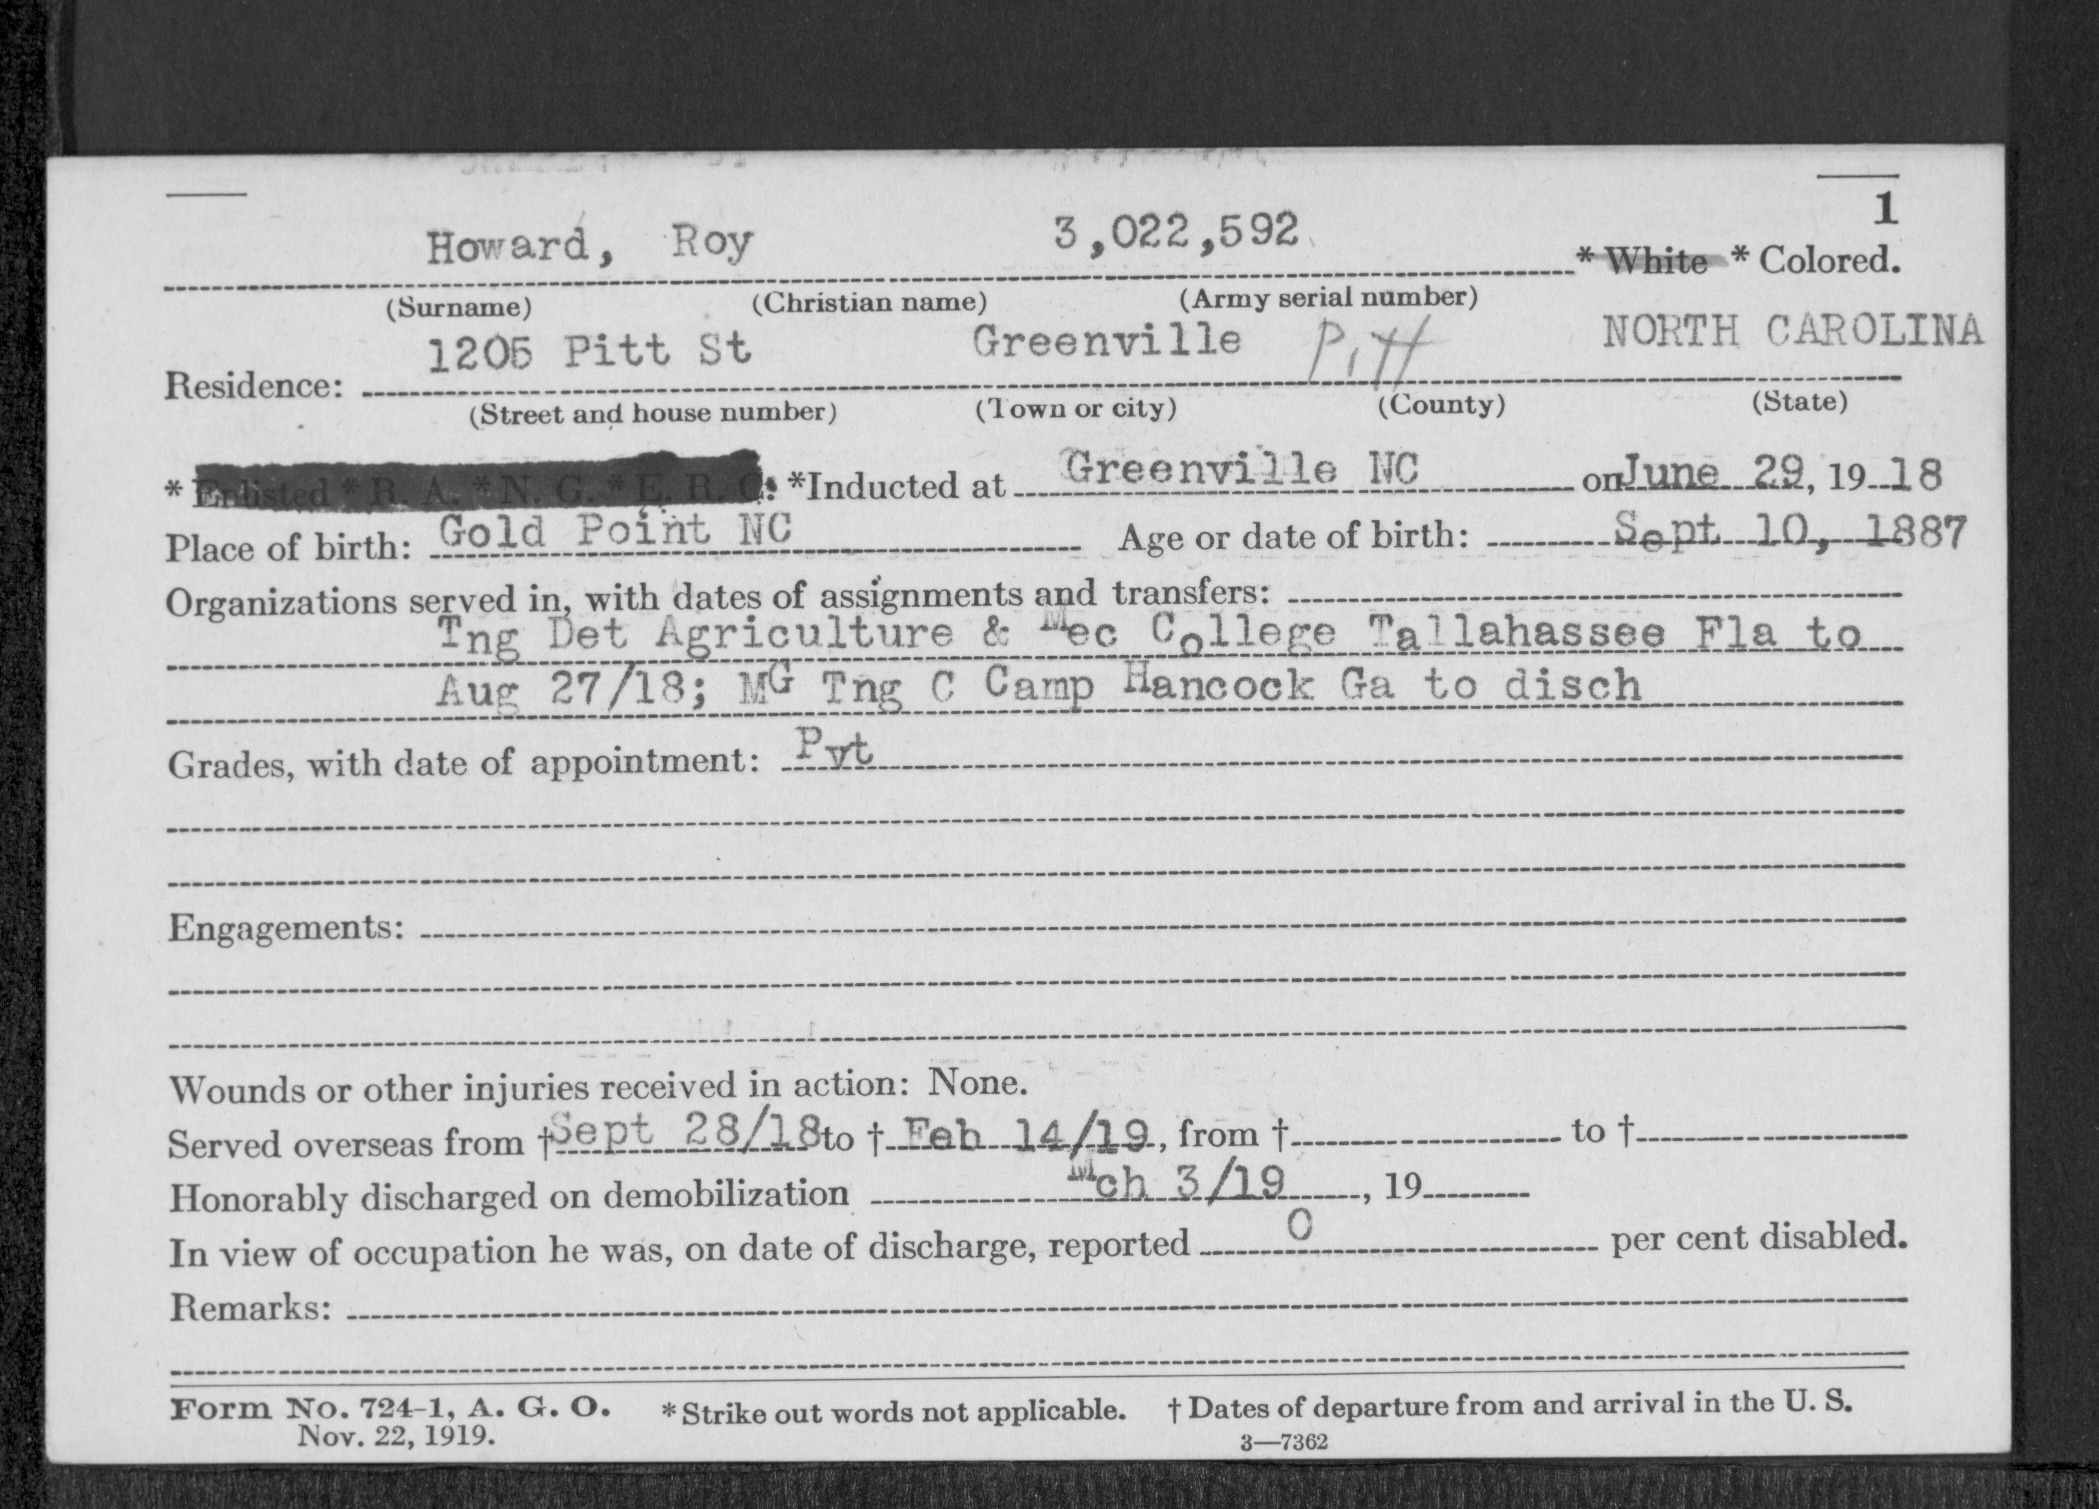 1
Howard, Roy 3,022,592 * White * Colored.
(Surname) (Christian name) (Army serial number)
1205 Pitt St Greenville Pitt NORTH CAROLINA
Residence:
(Street and house number) (Town or city) (County) (State)
* Enlisted * R. A. * N. G. * E. R. C. *Inducted at Greenville NC on June 29, 19 18
Place of birth: Gold Point NC Age or date of birth: Sept 10, 1887
Organizations served in, with dates of assignments and transfers:
Tng Det Agriculture & Mec College Tallahassee Fla to
Aug 27/18; MG Tng C Camp Hancock Ga to disch
Grades, with date of appointment: Pvt
Engagements:
Wounds or other injuries received in action: None.
Served overseas from † Sept 28/18 to † Feb 14/19, from † to †
Honorably discharged on demobilization Mch 3/19, 19
In view of occupation he was, on date of discharge, reported 0 per cent disabled.
Remarks:
Form No. 724-1, A. G. O. * Strike out words not applicable. † Dates of departure from and arrival in the U. S.
Nov. 22, 1919. 3—7362